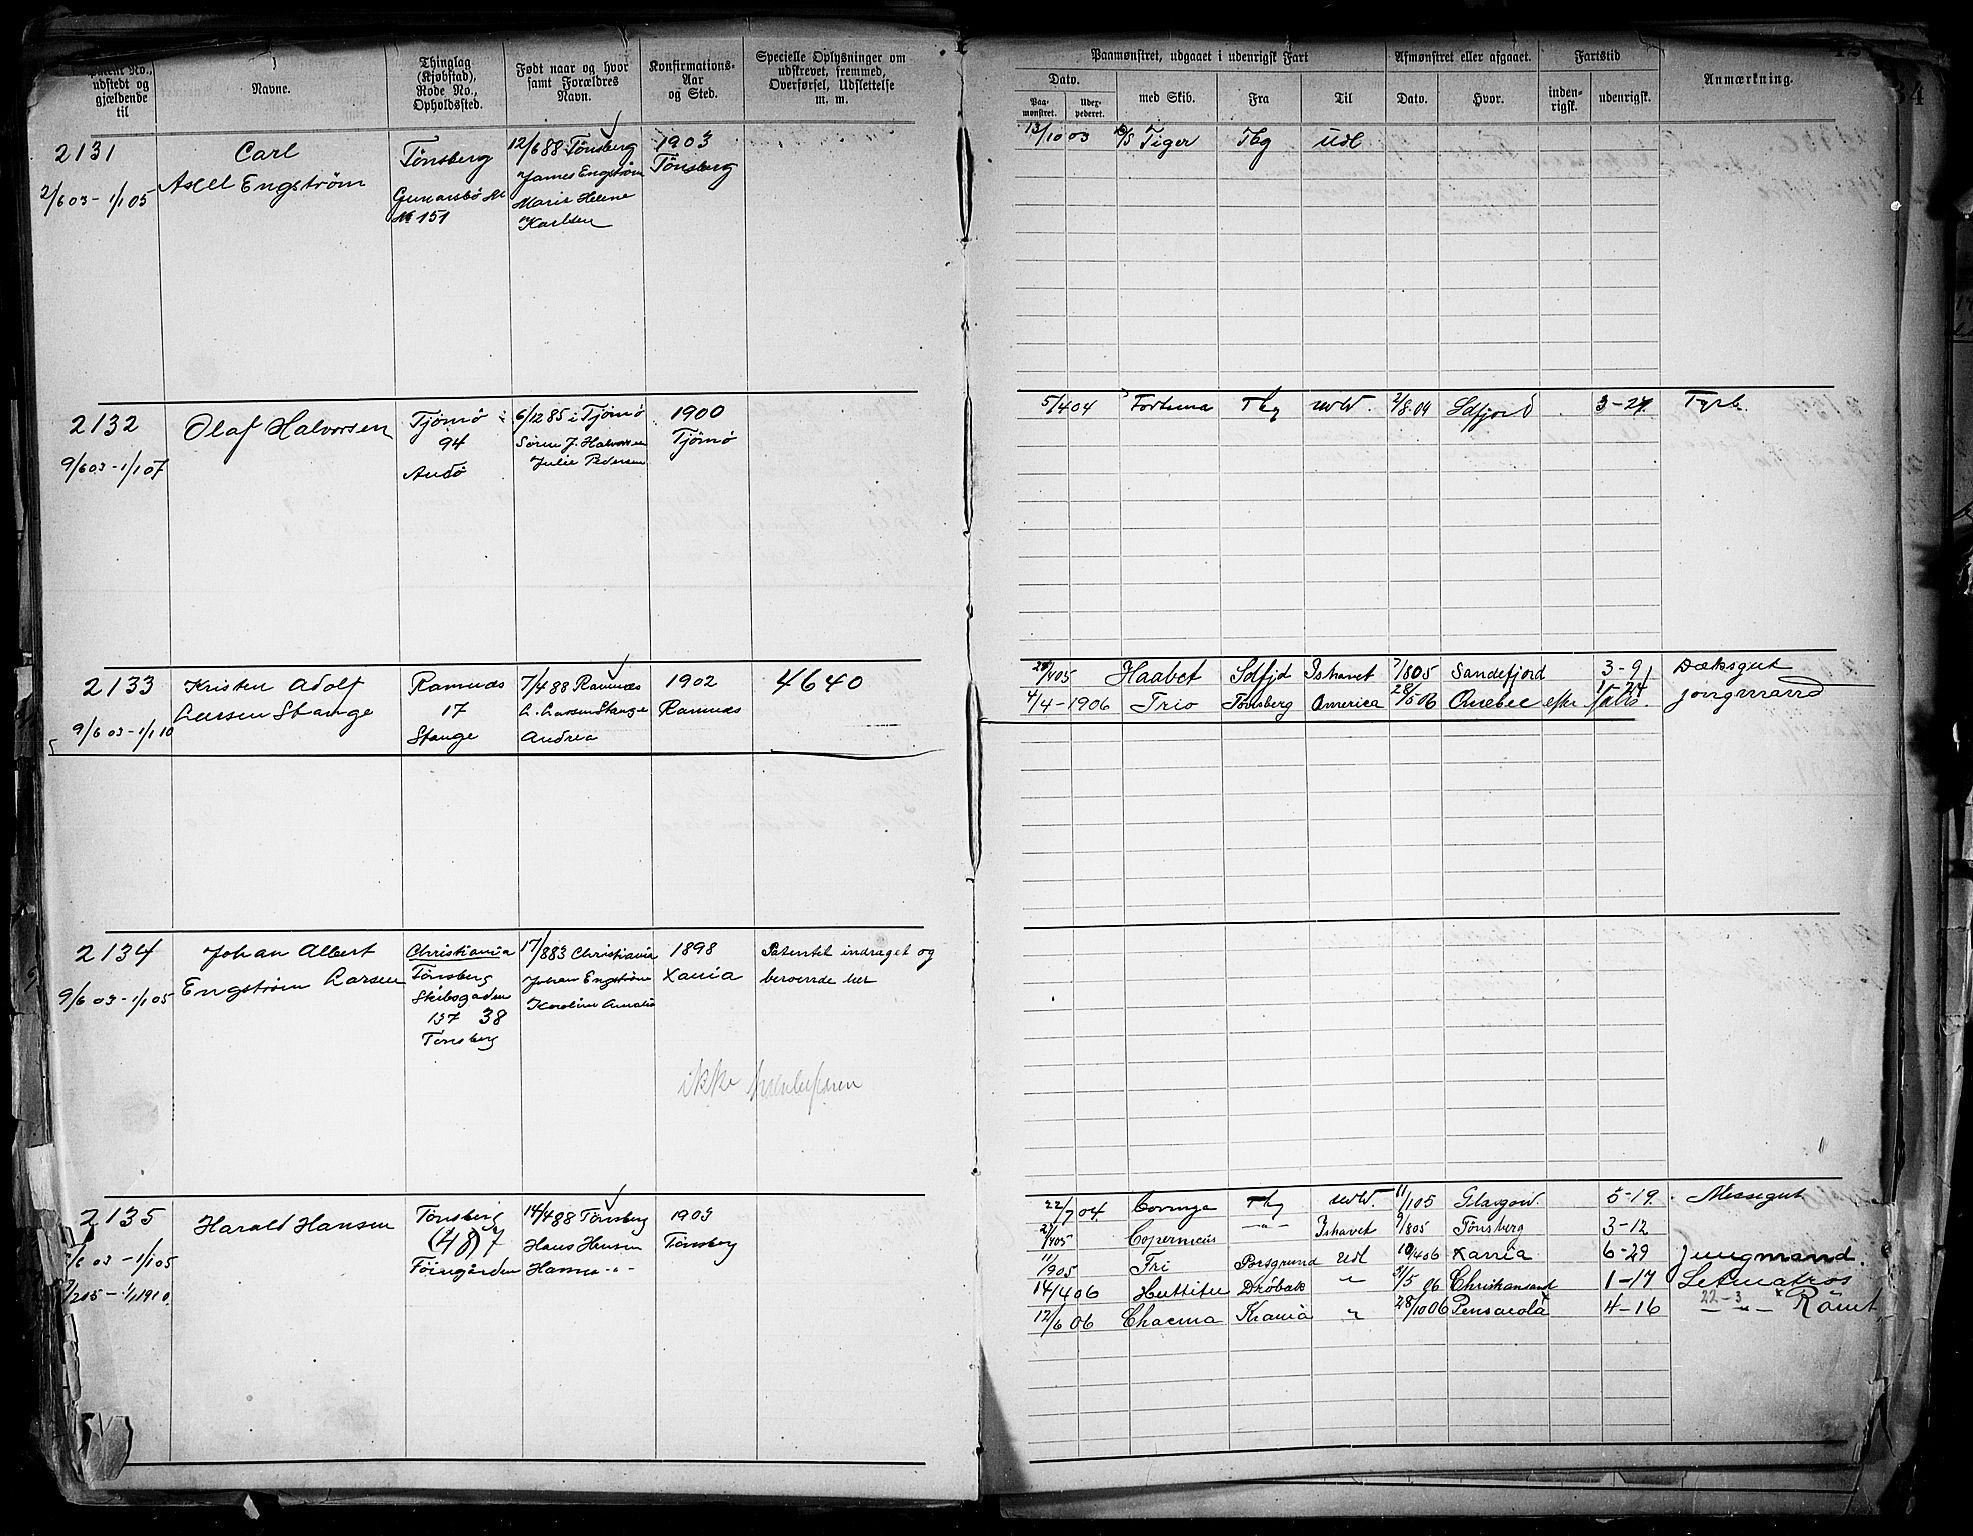 Patent No.,
udstedt og
gjældende
til
Navne.
Thinglag
(Kjøbstad),
Rode No.,
Opholdssted.
Født naar og hvor
samt Forældres
Navn.
Konfirmations-
Aar
og Sted.
Specielle Oplysninger om
udskrevet, fremmed,
Overførsel, Udslettelse
m. m.
2131
2/6 03 - 1/1 05
Carl
Axel Engström
Tönsberg
No 151
12/6 88 Tönsberg
James Engström
Marie Helene
Karlsen
1903
Tönsberg
2132
9/6 03 - 1/1 07
Olaf Halvorsen
Tjömö
94
6/12 85 i Tjömö
Sören J. Halvorsen
Julie Pedersen
1900
Tjömö
2133
9/6 03 - 1/1 10
Kristen Adolf
Larsen Stange
Ramnæs
17
Stange
7/4 88 Ramnæs
L. Larsen Stange
Andrea
1902
Ramnæs
4640
2134
9/6 03 - 1/1 05
Johan Albert
Engström Larsen
Christiania
Tönsberg
Skibsgaden
137 38
Tönsberg
17/8 83 Christiania
Johan Engström
Karoline Amalia
1898
Xania
Patentet indraget og
beroende her
ikke
2135
/6 03 - 1/1 05
7/2 05 - 1/1 1910
Harald Hansen
Tönsberg
(48) 7
Föiengården
14/4 88 Tönsberg
Hans Hansen
Hanna - " -
1903
Tönsberg
Paamønstret, udgaaet i udenrigsk Fart
Afmønstret eller afgaaet.
Fartstid
Anmærkning.
Dato.
Paa-
mønstret.
Uder-
pederet.
med Skib.
Fra
Til
Dato.
Hvor.
inden-
rigsk.
udenrigsk.
34
13/10 03 Tiger Tbg Udl
5/4 04 Fortuna Tbg udl. 2/8 04 Sdfjord 3-27.
4 05 Haabet Sdfjd Ishavet 7/8 05 Sandefjord 3-9 Dæksgut
4/4-1906 Trio Tönsberg America 28/5 06 Quebec 1-24 jongmand
22/7 04. Tbg udl. 11/1 05 Glasgow. 5-19. Messegut
4 05 Copernicus -"- Ishavet 9/8 05 Tönsberg 3-12
11/9 05 Fri Porsgrund Udl 10/4 06 Xania 6-29 Jungmand.
14/4 06 Dröbak " 31/5 06 Christiansand 1-17 Letmatros
12/6 06 Chacma Xrania " 28/10 06 Pensacola 4-16 22-3 - " - Römt